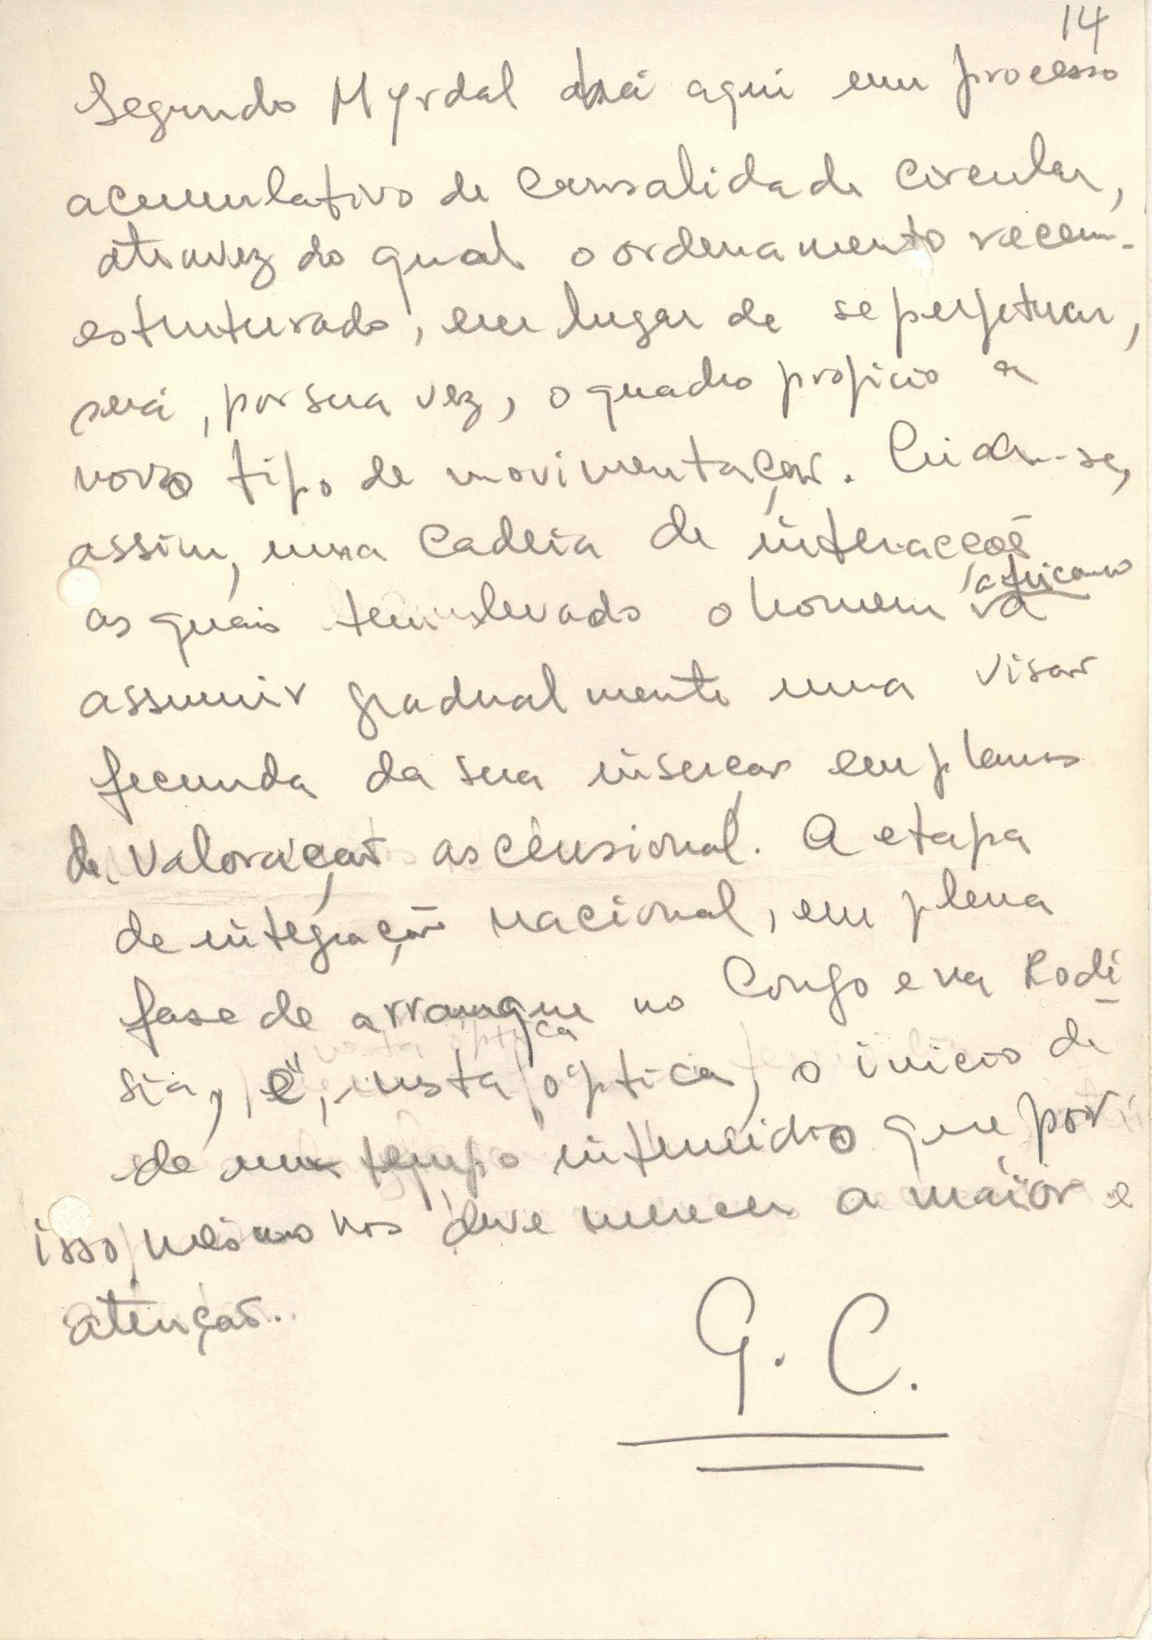 14
Segundo Myrdal há aqui um processo
acumulativo de causalidade circular,
atravez do qual o ordenamento recem-
estruturado, em lugar de se perpetuar,
será, por sua vez, o quadro propicio a
novo tipo de movimentação. Cria-se,
assim, uma cadeia de interacções
africano
as quais tem levado o homem a
assumir gradualmente uma visão
fecunda da sua inserção em planos
de valoração ascensional. A etapa
de integração nacional, em plena
fase de arranque no Congo e na Rodé
sia, é, nesta óptica, o inicio de
de um tempo que por
isso mesmo nos deve merecer a maior
atenção.
G. C.